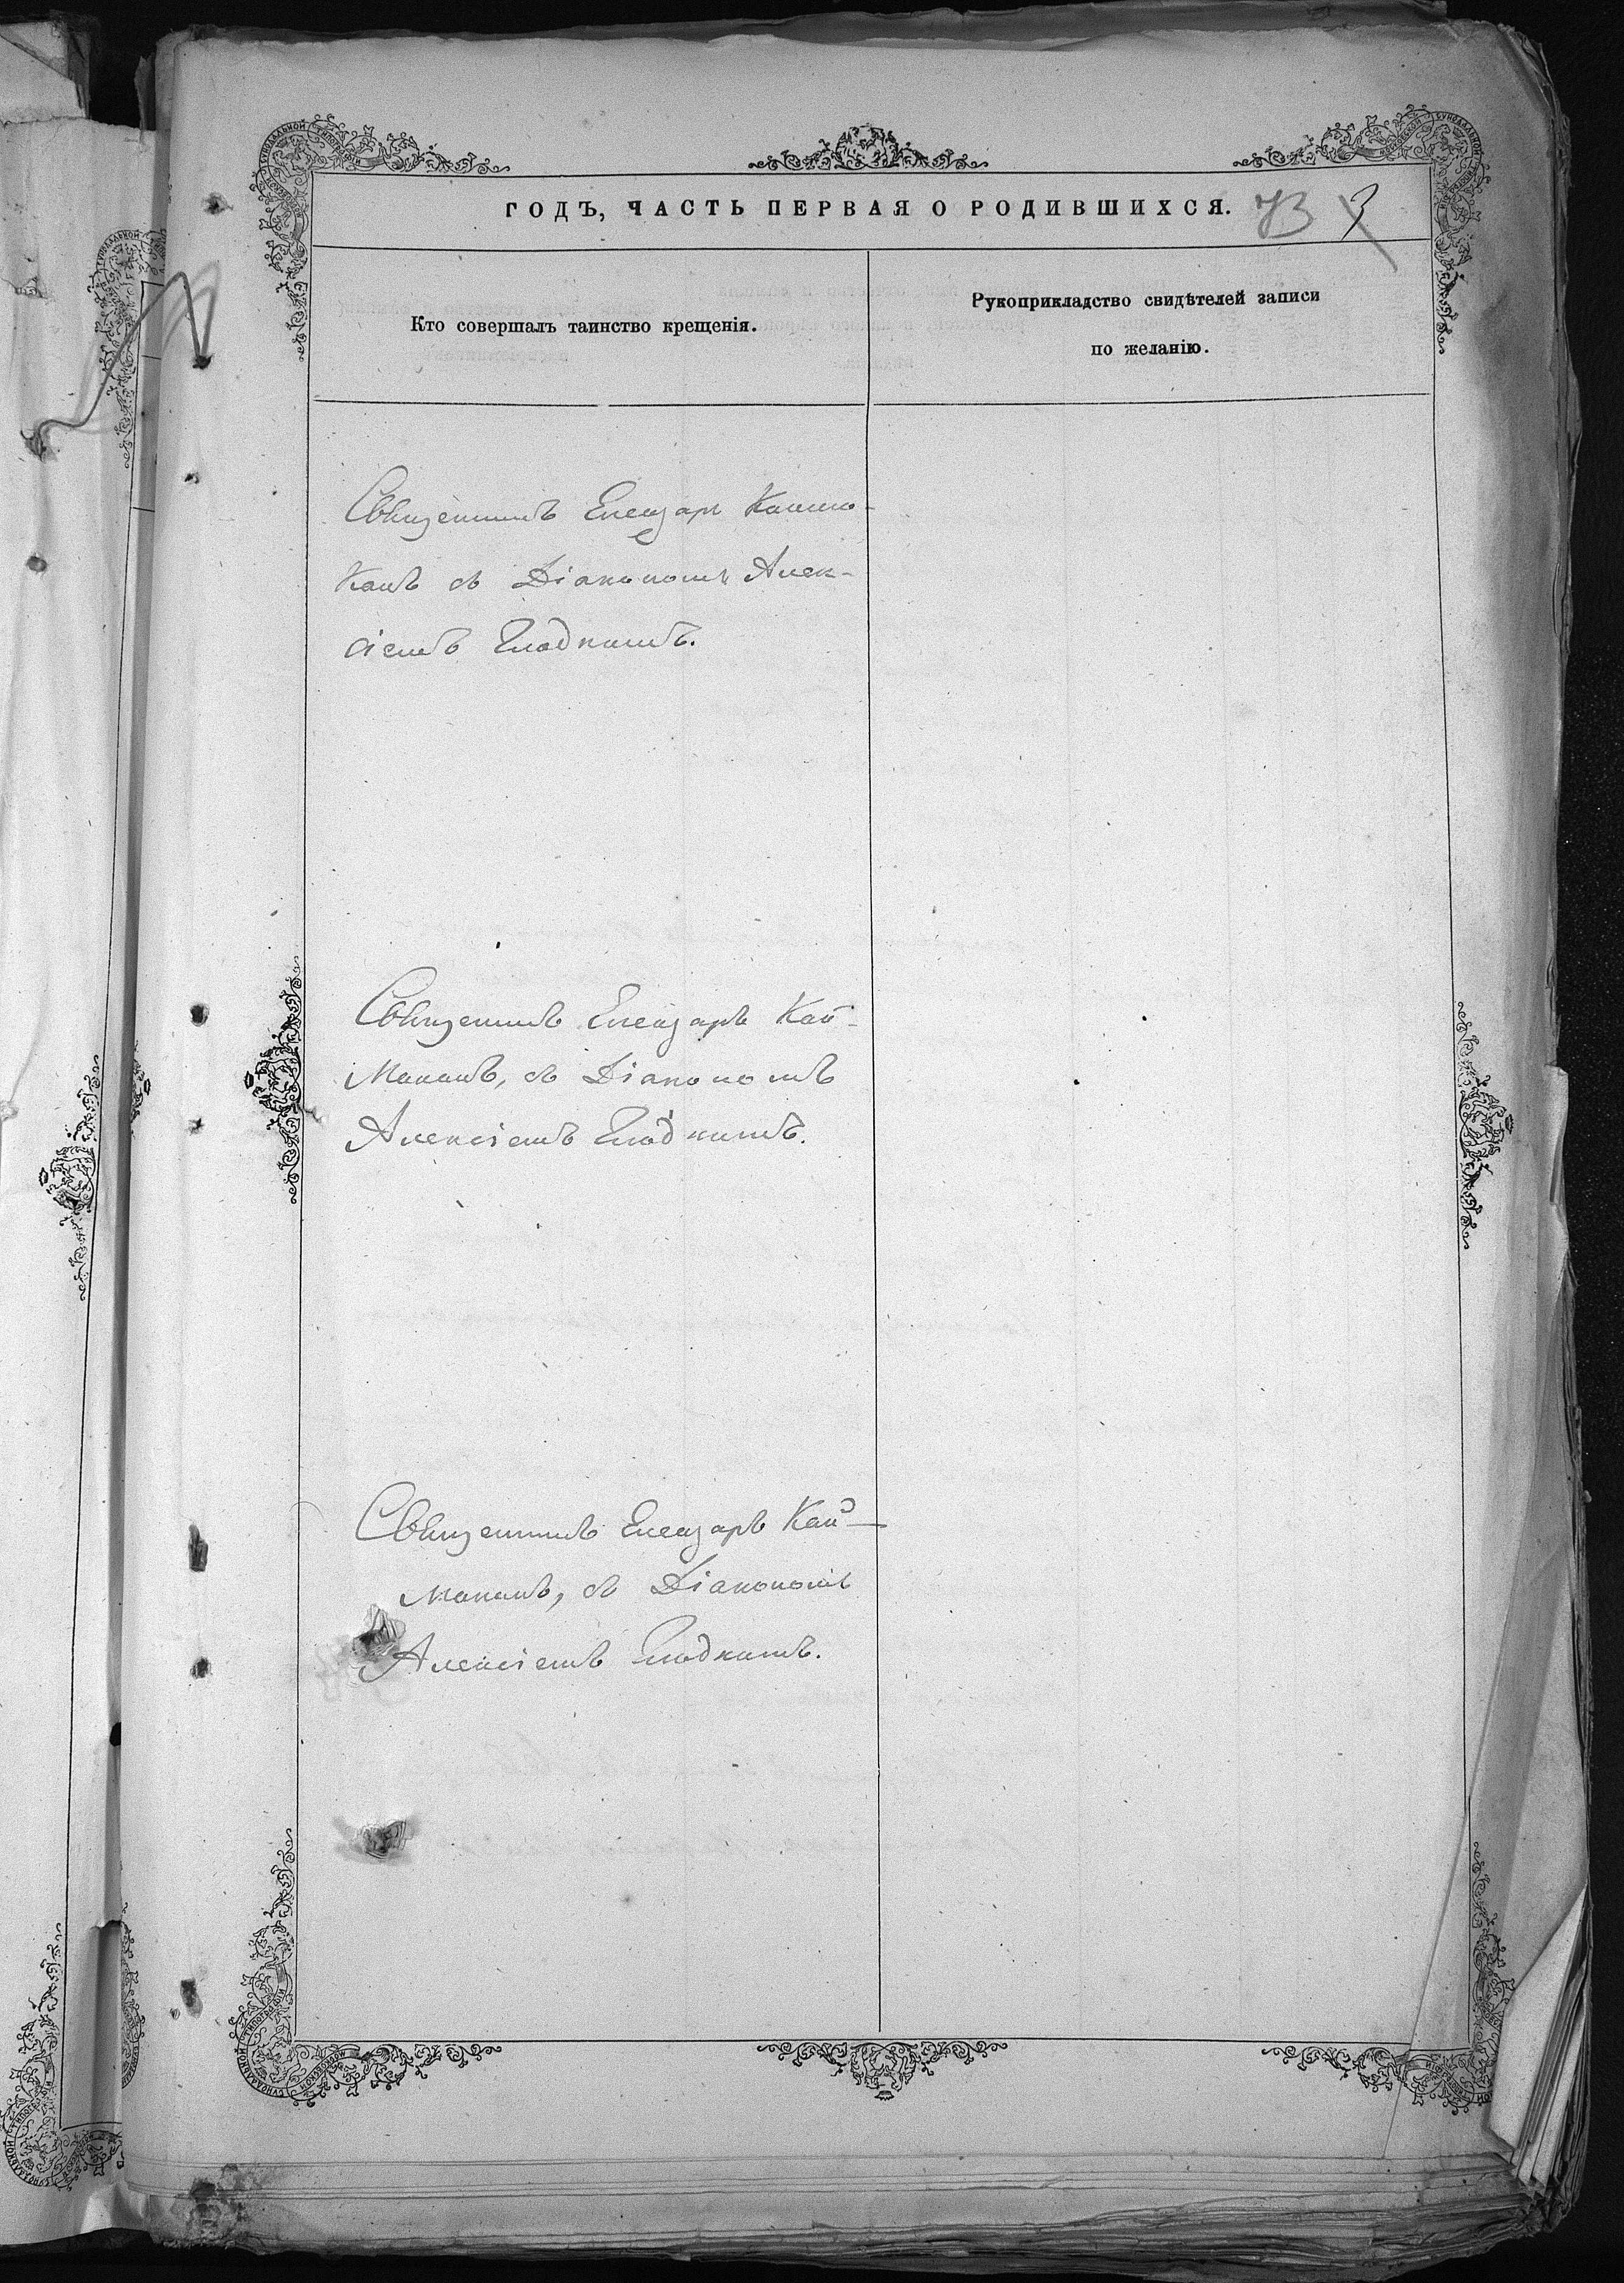 ГОДЪ, ЧАСТЬ ПЕРВАЯ О РОДИВШИХСЯ. 73 3
Кто совершалъ таинство крещенія.
Рукоприкладство свидѣтелей записи
по желанію.
Священникъ Елеазаръ Кайма-
канъ съ Діакономъ Алек-
сіемъ Гладкимъ.
Священникъ Елеазаръ Кай-
маканъ, съ Діакономъ
Алексіемъ Гладкимъ.
Священникъ Елеазаръ Кай-
маканъ, съ Діакономъ
Алексіемъ Гладкимъ.